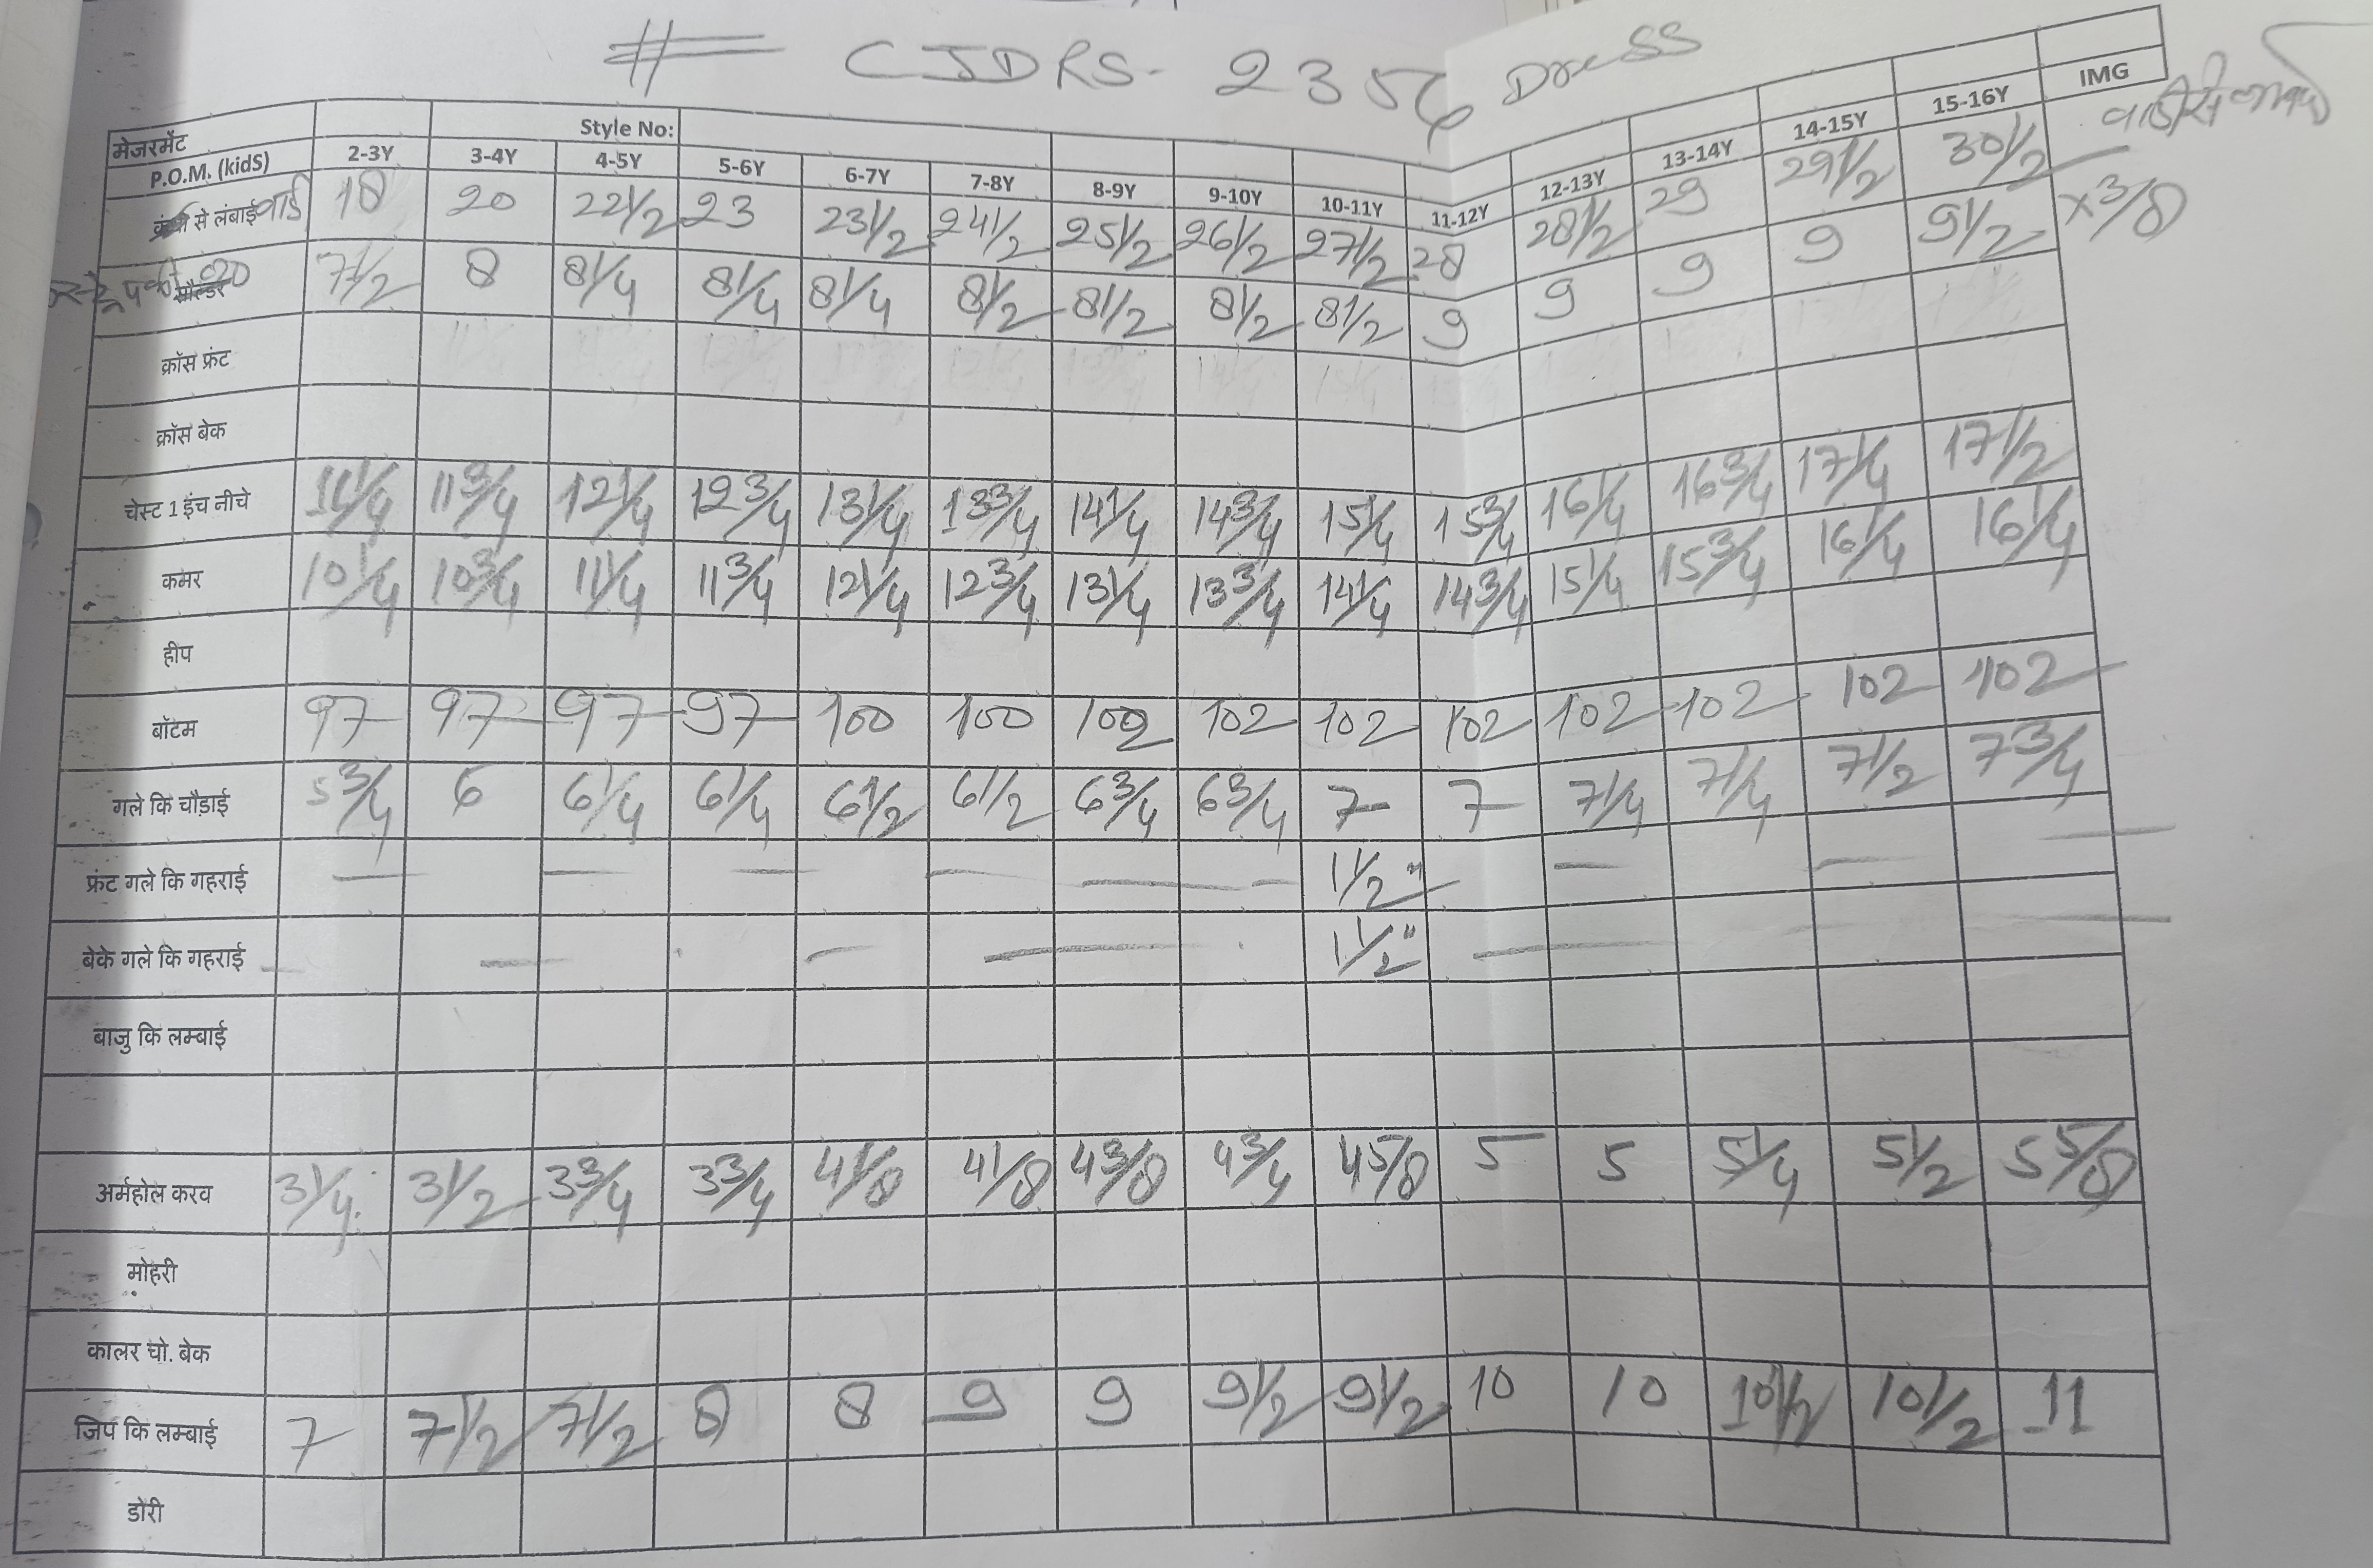 # CJDRS- 2356 Dress
मेजरमेंट Style No:
P.O.M. (kidS) 2-3Y 3-4Y 4-5Y 5-6Y 6-7Y 7-8Y 8-9Y 9-10Y 10-11Y 11-12Y 12-13Y 13-14Y 14-15Y 15-16Y IMG
से लंबाई 18 20 22 1/2 23 23 1/2 24 1/2 25 1/2 26 1/2 27 1/2 28 28 1/2 29 29 1/2 30 1/2
7 1/2 8 8 1/4 8 1/4 8 1/4 8 1/2 8 1/2 8 1/2 8 1/2 9 9 9 9 9 1/2 x 3/8
क्रॉस फ्रंट
क्रॉस बेक
चेस्ट 1 इंच नीचे 11 1/4 11 3/4 12 1/4 12 3/4 13 1/4 13 3/4 14 1/4 14 3/4 15 1/4 15 3/4 16 1/4 16 3/4 17 1/4 17 1/2
कमर 10 1/4 10 3/4 11 1/4 11 3/4 12 1/4 12 3/4 13 1/4 13 3/4 14 1/4 14 3/4 15 1/4 15 3/4 16 1/4 16 1/4
हीप
बॉटम 97 97 97 97 100 100 102 102 102 102 102 102 102
गले कि चौड़ाई 5 3/4 6 6 1/4 6 1/4 6 1/2 6 1/2 6 3/4 6 3/4 7 7 7 1/4 7 1/4 7 1/2 7 3/4
फ्रंट गले कि गहराई — — — — — — 1 1/2" — —
बेके गले कि गहराई — — — 1 1/2" —
बाजु कि लम्बाई
अर्महोल करव 3 1/4 3 1/2 3 3/4 3 3/4 4 1/8 4 1/8 4 3/8 4 3/4 4 5/8 5 5 5 1/4 5 1/2 5 5/8
मोहरी
कालर चो. बेक
जिप कि लम्बाई 7 7 1/2 7 1/2 8 8 9 9 9 1/2 9 1/2 10 10 10 1/2 10 1/2 11
डोरी